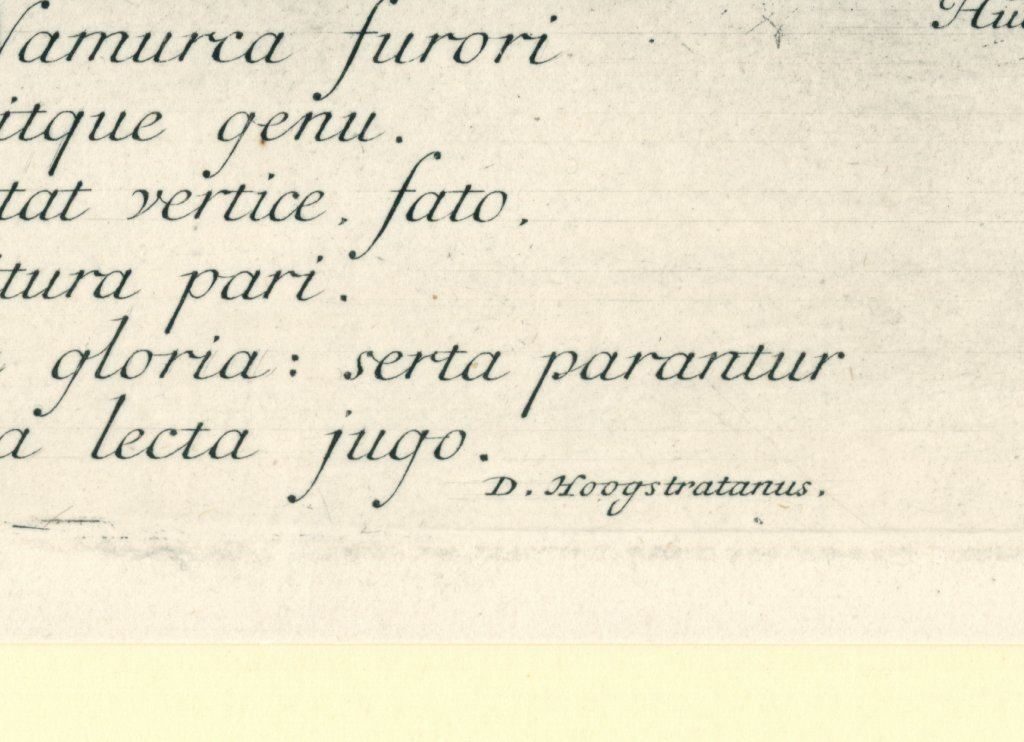 Namurca furori
itque genu.
tat vertice, fato,
tura pari.
gloria: serta parantur
a lecta jugo.
D. Hoogstratanus.